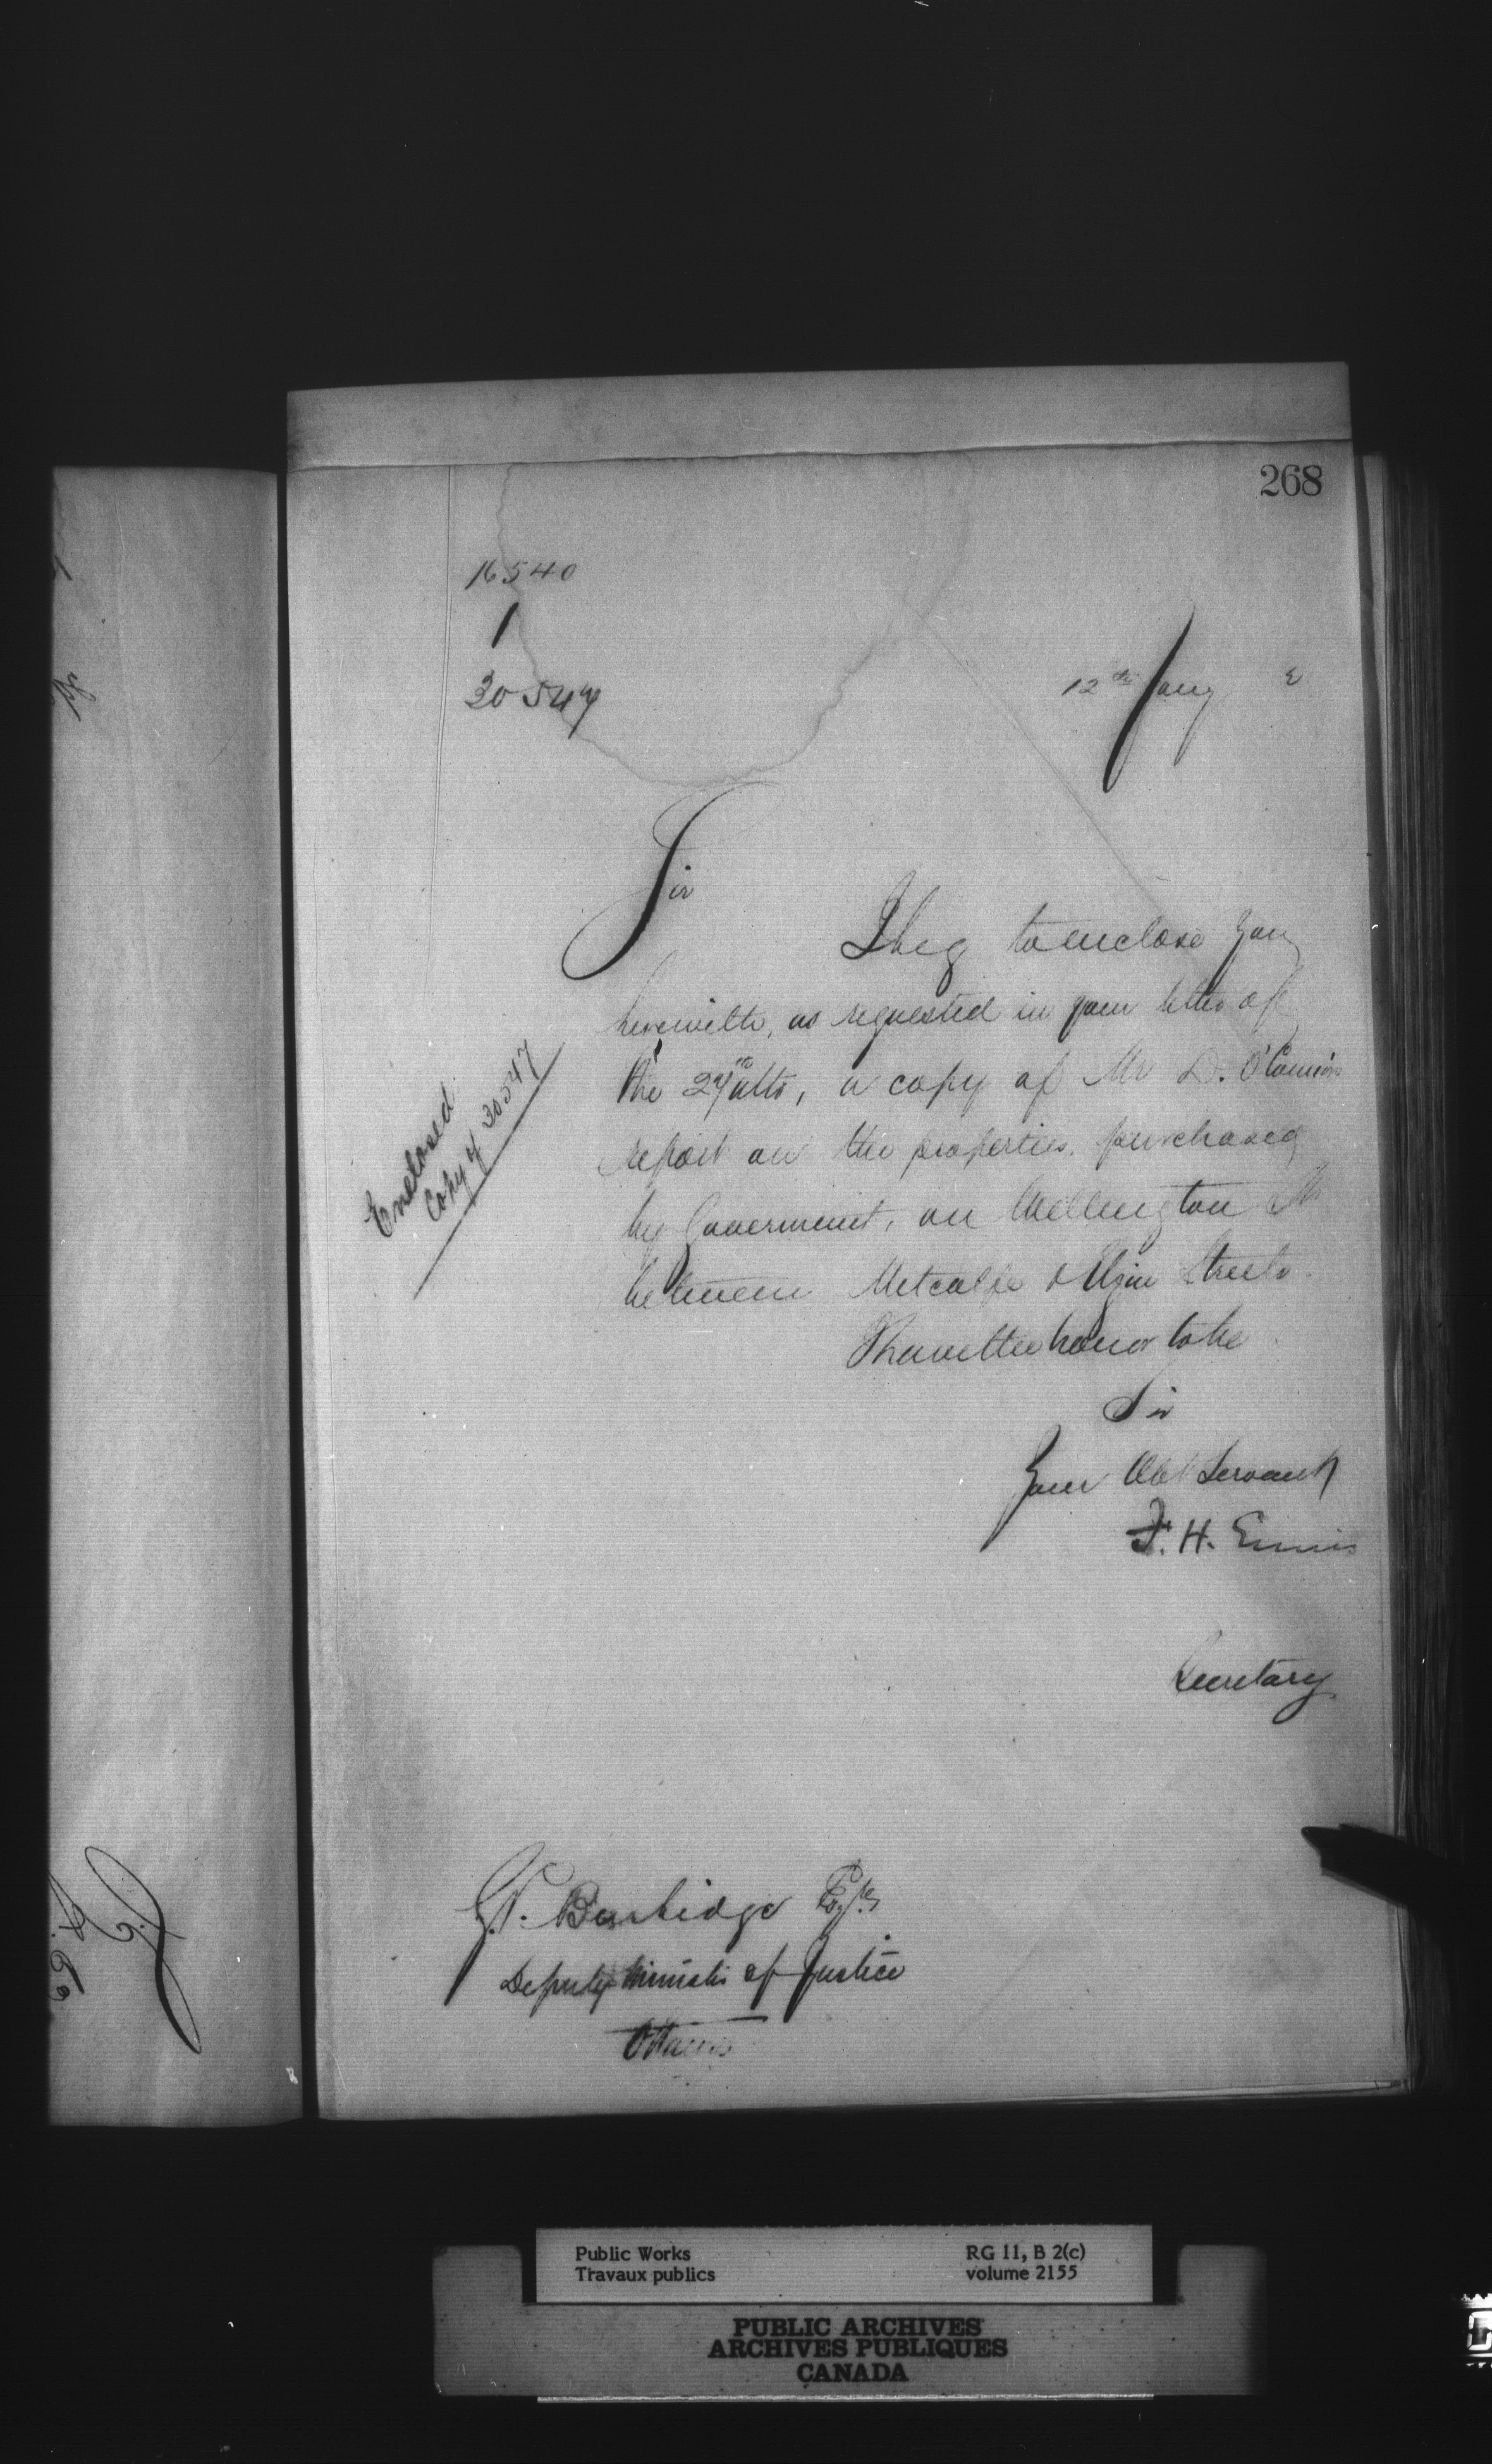 268
16540
1
30547
12th Jany
Sir
I beg to enclose you
herewith, as requested in your letter of
the 27th ulto, a copy of Mr D. O'Connor's
report on the properties purchased
by Government, on Wellington St
between Metcalfe & Elgin Streets.
Enclosed
Copy of 30547
I have the honor to be
Sir
Your Obt Servant
F. H. Ennis
Secretary
Burbidge Esqre
Deputy Minister of Justice
Ottawa
Public Works RG 11, B 2(c)
Travaux publics volume 2155
PUBLIC ARCHIVES
ARCHIVES PUBLIQUES
CANADA